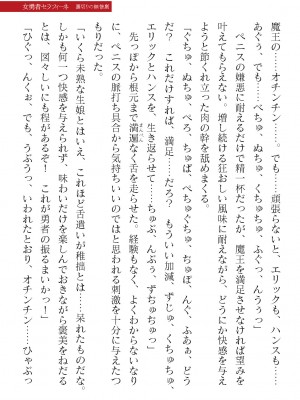 女勇者セラフィーネ 裏切りの
魔王の……オチンチン……。でも……頑張らないと、エリックも、ハンスも……
あぐぅ、でも……ぺちゅ、ぬちゅ、くちゅちゅ、ふぐっ、んうぅっ」
　ペニスの嫌悪に耐えるだけで精一杯だったが、魔王を満足させなければ望みを
叶えてもらえない。増し続ける狂おしい風味に耐えながら、どうにか快感を与え
ようと節くれ立った肉の幹を舐めまくる。
「ぺちゅ、ぺろ、ちゅぱ、ぺちゅぐちゅ、ちゅぽ、んぐ、ふああ、どう
だ？　これだけすれば、満足……だろ？　もういい加減、ずじゅ、くちゅちゅ、
エリックとハンスを、生き返らせて……ちゅぶ、んぶぅ、ずちゅちゅっ」
　先っぽから根元まで満遍なく舌を走らせた。経験もなく、よくわからないなり
に、ペニスの脈打ち具合から気持ちいいのではと思われる刺激を十分に与えたつ
もりだった。
「いくら未熟な生娘とはいえ、これほど舌遣いが稚拙とは……呆れたものだな。
しかも何一つ快感を与えられず、味わいだけを楽しんでおきながら褒美をねだる
とは、図々しいにも程があるぞ！　これが勇者の振るまいかっ！」
「ひぐっ、んくぉ、でも、うぶうっ　いわれたとおり、オチンチン……ひゃぶっ